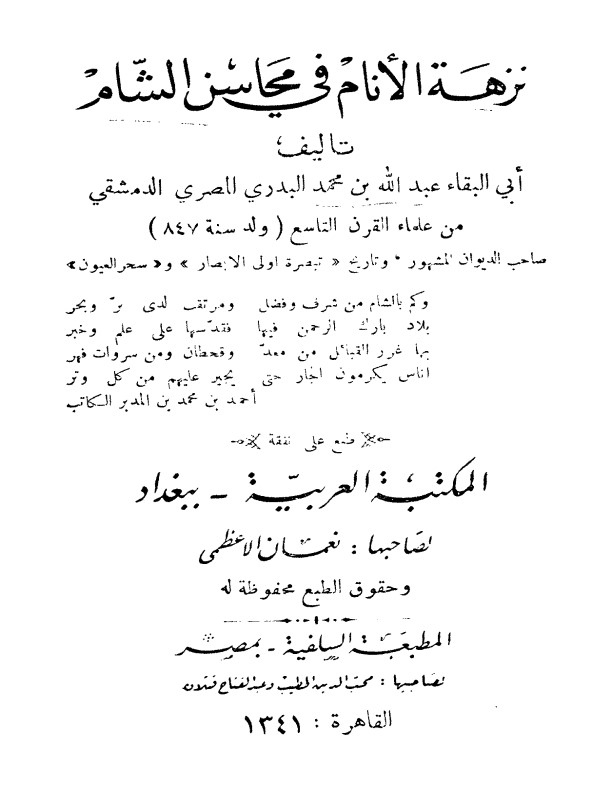 نزهة الأنام في محاسن الشّام
تأليف
أبي البقاء عبد الله بن محمد البدري المصري الدمشقي
من علماء القرن التاسع ( ولد سنة ٨٤٧ )
صاحب الديوان المشهور وتاريخ « تبصرة اولى الابصار » و« سحر العيون »
وكم بالشام من شرف وفضل ومرتقب لدى برّ وبحر
بلاد بارك الرحمن فيها فقدّسها على علم وخبر
بها غرر القبائل من معدّ وقحطان ومن سروات فهر
اناس يكرمون الجار حتى يجير عليهم من كل وتر
أحمد بن محمد بن المدبر الكاتب
طبع على نفقة
المكتبة العربيّة - ببغداد
لصاحبها : نعمان الاعظمى
وحقوق الطبع محفوظة له
المطبعة السلفية - بمصر
لصاحبيها : محب الدين الخطيب وعبد الفتاح قتلان
القاهرة : ١٣٤١